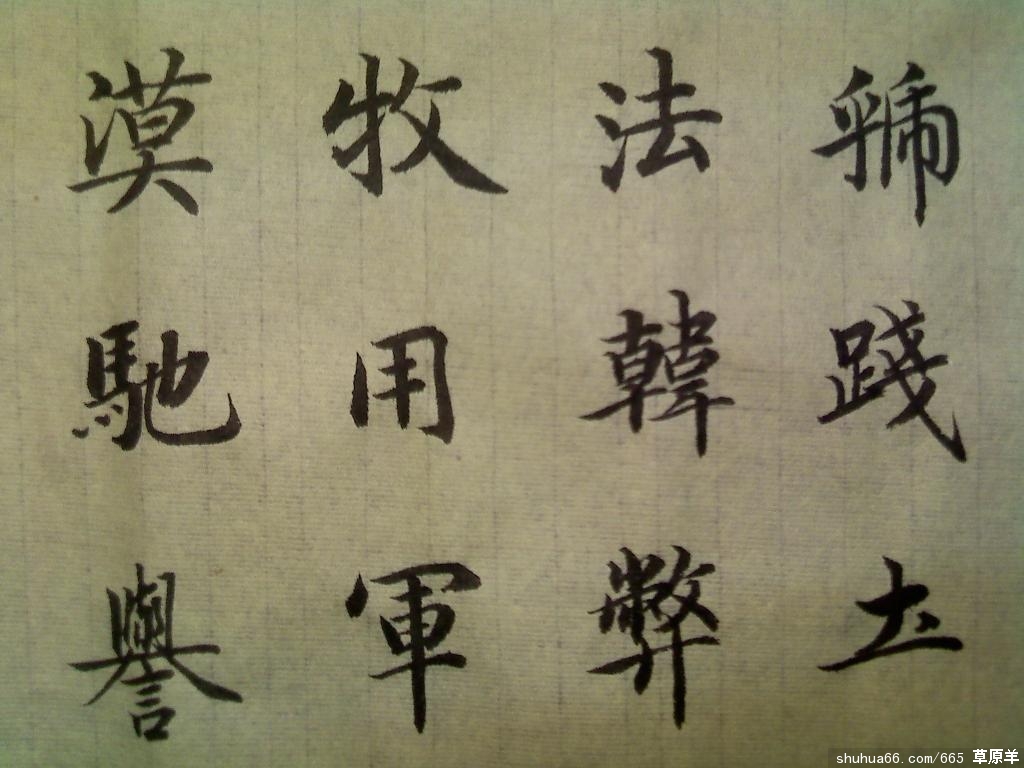 虢踐土
法韓弊
牧用軍
漠馳譽
shuhua66.com/665 草原羊